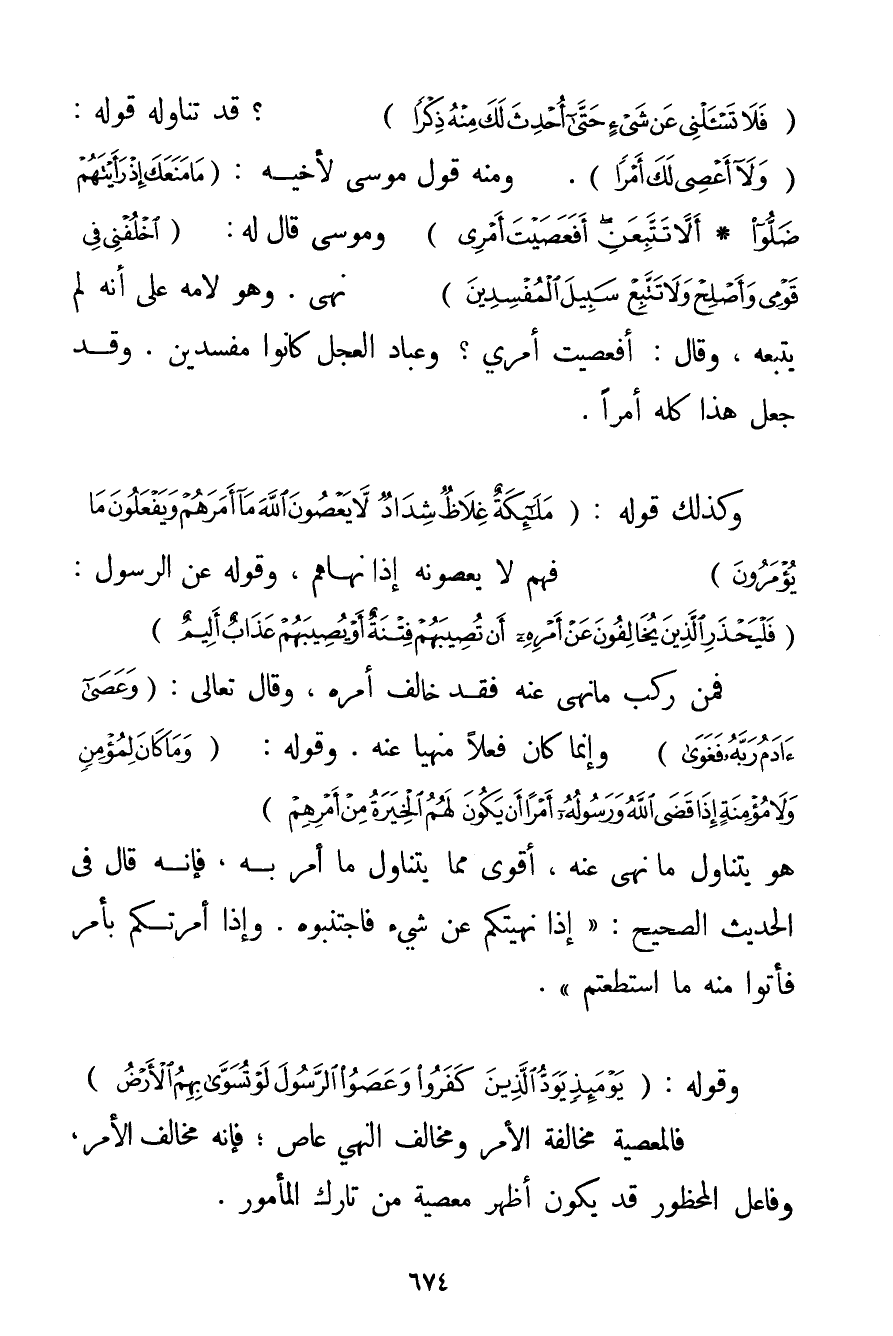 ( فَلَا تَسْـَٔلْنِى عَن شَىْءٍ حَتَّىٰٓ أُحْدِثَ لَكَ مِنْهُ ذِكْرًا ) ؟ قد تناوله قوله :
( وَلَآ أَعْصِى لَكَ أَمْرًا ) . ومنه قول موسى لأخيــه : ( مَا مَنَعَكَ إِذْ رَأَيْتَهُمْ
ضَلُّوٓا۟ * أَلَّا تَتَّبِعَنِ ۖ أَفَعَصَيْتَ أَمْرِى ) وموسى قال له : ( ٱخْلُفْنِى فِى
قَوْمِى وَأَصْلِحْ وَلَا تَتَّبِعْ سَبِيلَ ٱلْمُفْسِدِينَ ) نهى . وهو لامه على أنه لم
يتبعه ، وقال : أفعصيت أمري ؟ وعباد العجل كانوا مفسدين . وقــد
جعل هذا كله أمراً .
وكذلك قوله : ( مَلَـٰٓئِكَةٌ غِلَاظٌ شِدَادٌ لَّا يَعْصُونَ ٱللَّهَ مَآ أَمَرَهُمْ وَيَفْعَلُونَ مَا
يُؤْمَرُونَ ) فهم لا يعصونه إذا نهــاهم ، وقوله عن الرسول :
( فَلْيَحْذَرِ ٱلَّذِينَ يُخَالِفُونَ عَنْ أَمْرِهِۦٓ أَن تُصِيبَهُمْ فِتْنَةٌ أَوْ يُصِيبَهُمْ عَذَابٌ أَلِيمٌ )
فمن ركب مانهى عنه فقــد خالف أمره ، وقال تعالى : ( وَعَصَىٰٓ
ءَادَمُ رَبَّهُۥ فَغَوَىٰ ) وإنما كان فعلاً منهيا عنه . وقوله : ( وَمَا كَانَ لِمُؤْمِنٍ
وَلَا مُؤْمِنَةٍ إِذَا قَضَى ٱللَّهُ وَرَسُولُهُۥٓ أَمْرًا أَن يَكُونَ لَهُمُ ٱلْخِيَرَةُ مِنْ أَمْرِهِمْ )
هو يتناول ما نهى عنه ، أقوى مما يتناول ما أمر بــه ، فإنــه قال فى
الحديث الصحيح : « إذا نهيتكم عن شيء فاجتنبوه . وإذا أمرتــكم بأمر
فأتوا منه ما استطعتم » .
وقوله : ( يَوْمَئِذٍ يَوَدُّ ٱلَّذِينَ كَفَرُوا۟ وَعَصَوُا۟ ٱلرَّسُولَ لَوْ تُسَوَّىٰ بِهِمُ ٱلْأَرْضُ )
فالمعصية مخالفة الأمر ومخالف النهي عاص ؛ فإنه مخالف الأمر ،
وفاعل المحظور قد يكون أظهر معصية من تارك المأمور .
٦٧٤